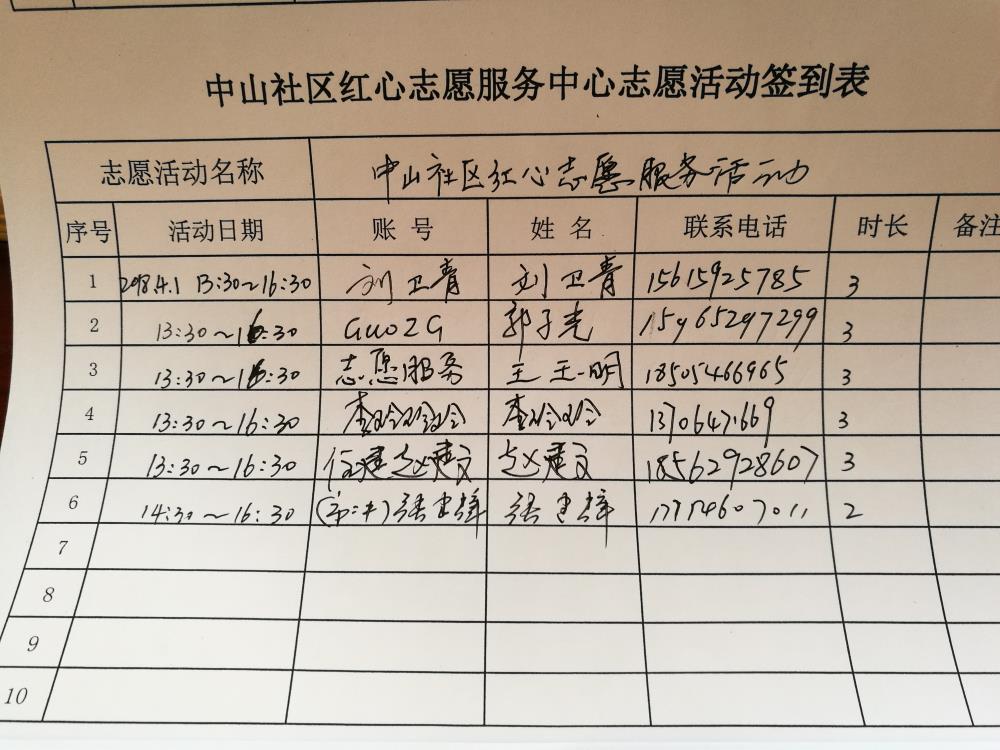 中山社区红心志愿服务中心志愿活动签到表
志愿活动名称 中山社区红心志愿服务活动
序号 活动日期 账号 姓名 联系电话 时长 备注
1 2018.4.1 13:30～16:30 刘卫青 刘卫青 15615925785 3
2 13:30～16:30 GUOZG 郭子光 15965297299 3
3 13:30～16:30 志愿服务 王玉明 18505466965 3
4 13:30～16:30 3
5 13:30～16:30 赵建文 赵建文 18562928607 3
6 14:30～16:30 张建 2
7
8
9
10